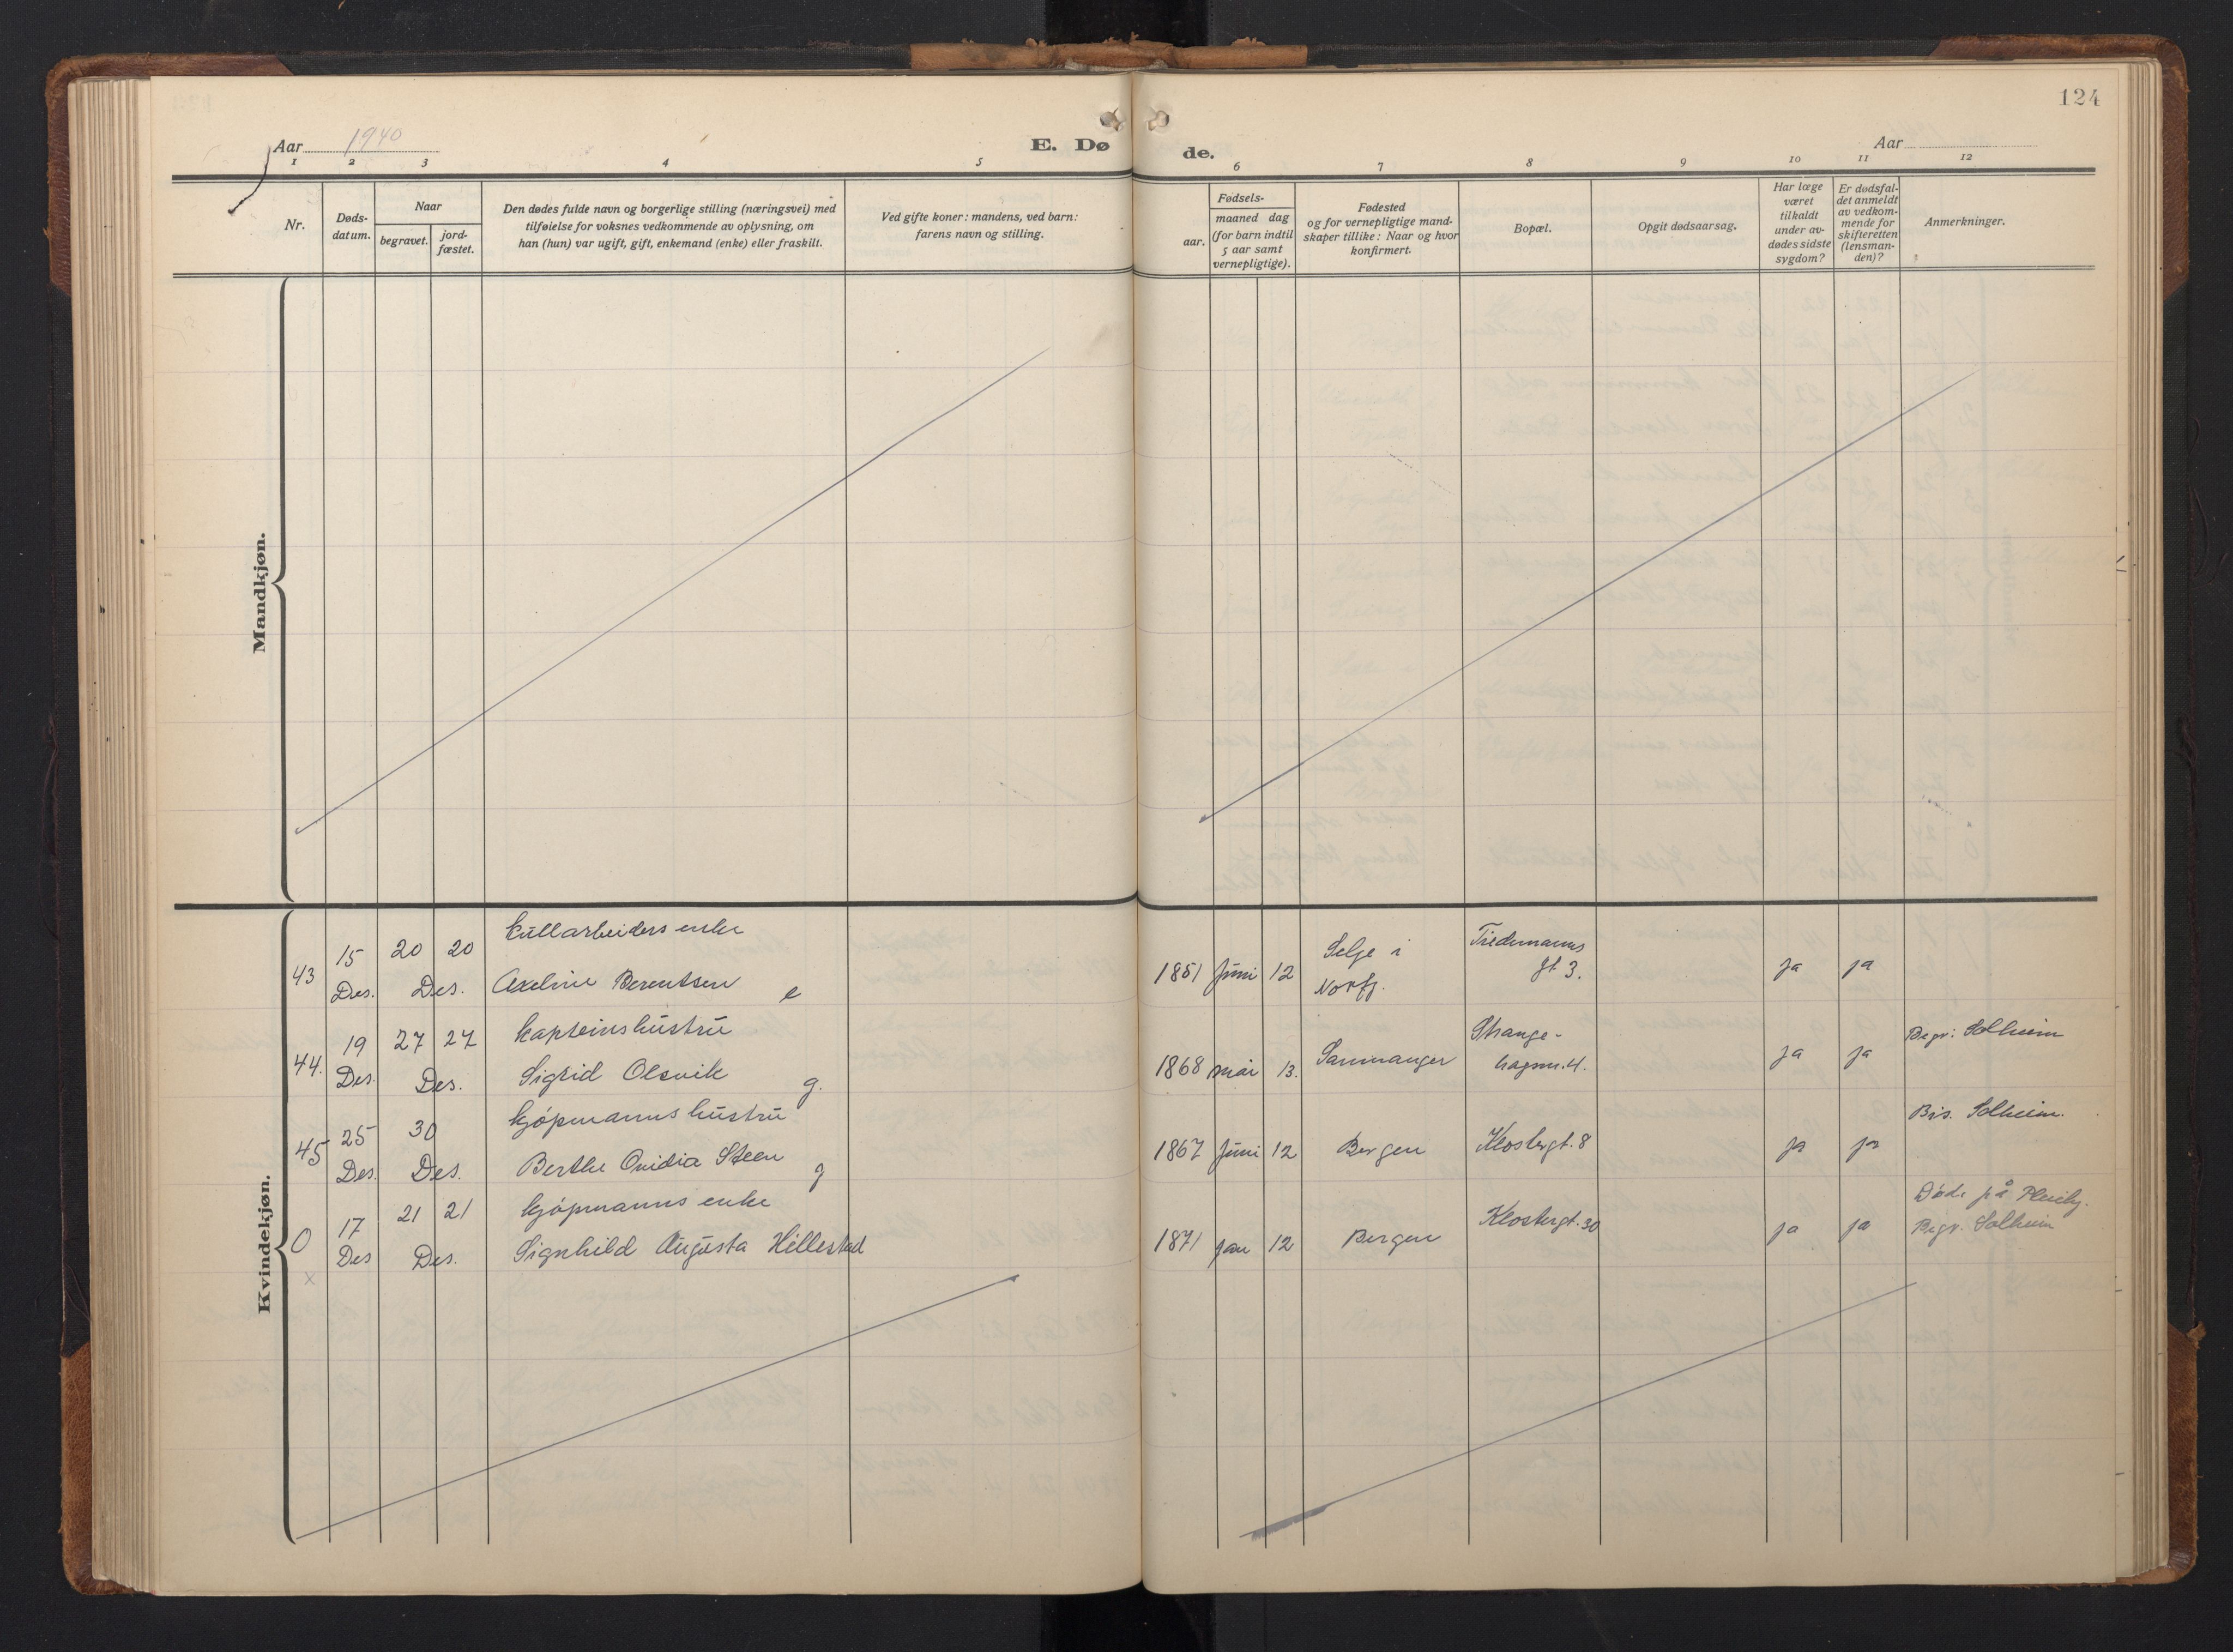 124
Aar 1940
E. Dø
de.
Aar
1 2 3 4 5
6 7 8 9 10 11 12
Nr.
Døds-
datum.
Naar
begravet.
jord-
fæstet.
Den dødes fulde navn og borgerlige stilling (næringsvei) med
tilføielse for voksnes vedkommende av oplysning, om
han (hun) var ugift, gift, enkemand (enke) eller fraskilt.
Ved gifte koner: mandens, ved barn:
farens navn og stilling.
Fødsels-
aar.
maaned dag
(for barn indtil
5 aar samt
vernepligtige).
Fødested
og for vernepligtige mand-
skaper tillike: Naar og hvor
konfirmert.
Bopæl.
Opgit dødsaarsag.
Har læge
været
tilkaldt
under av-
dødes sidste
sygdom?
Er dødsfal-
det anmeldt
av vedkom-
mende for
skifteretten
(lensman-
den)?
Anmerkninger.
Mandkjøn.
Kvindekjøn.
kullarbeiders enke
15 20 20
Selje i
Tiedemanns
43 Des. Des. Axeline Berentsen e
1851 Juni 12 Nordfj. gt 3. ja ja
19 27 27 kapteinshustru
Strange-
Begr: Solheim
44. Des. Des. Sigrid Olsvik g.
1868 mai 13. Sammanger hagen.4. ja ja
25 30 kjøpmannshustru
Bis. Solheim.
45 Des. Des. Berthe Ovidia Steen g
1867 Juni 12 Bergen Klostergt. 8 ja ja
17 21 21 kjøpmanns enke
Døde på Pleiehj.
0 Des Des. Signhild Augusta Hillestad
1871 Jan 12 Bergen Klostergt. 30 ja ja Begr. Solheim
x